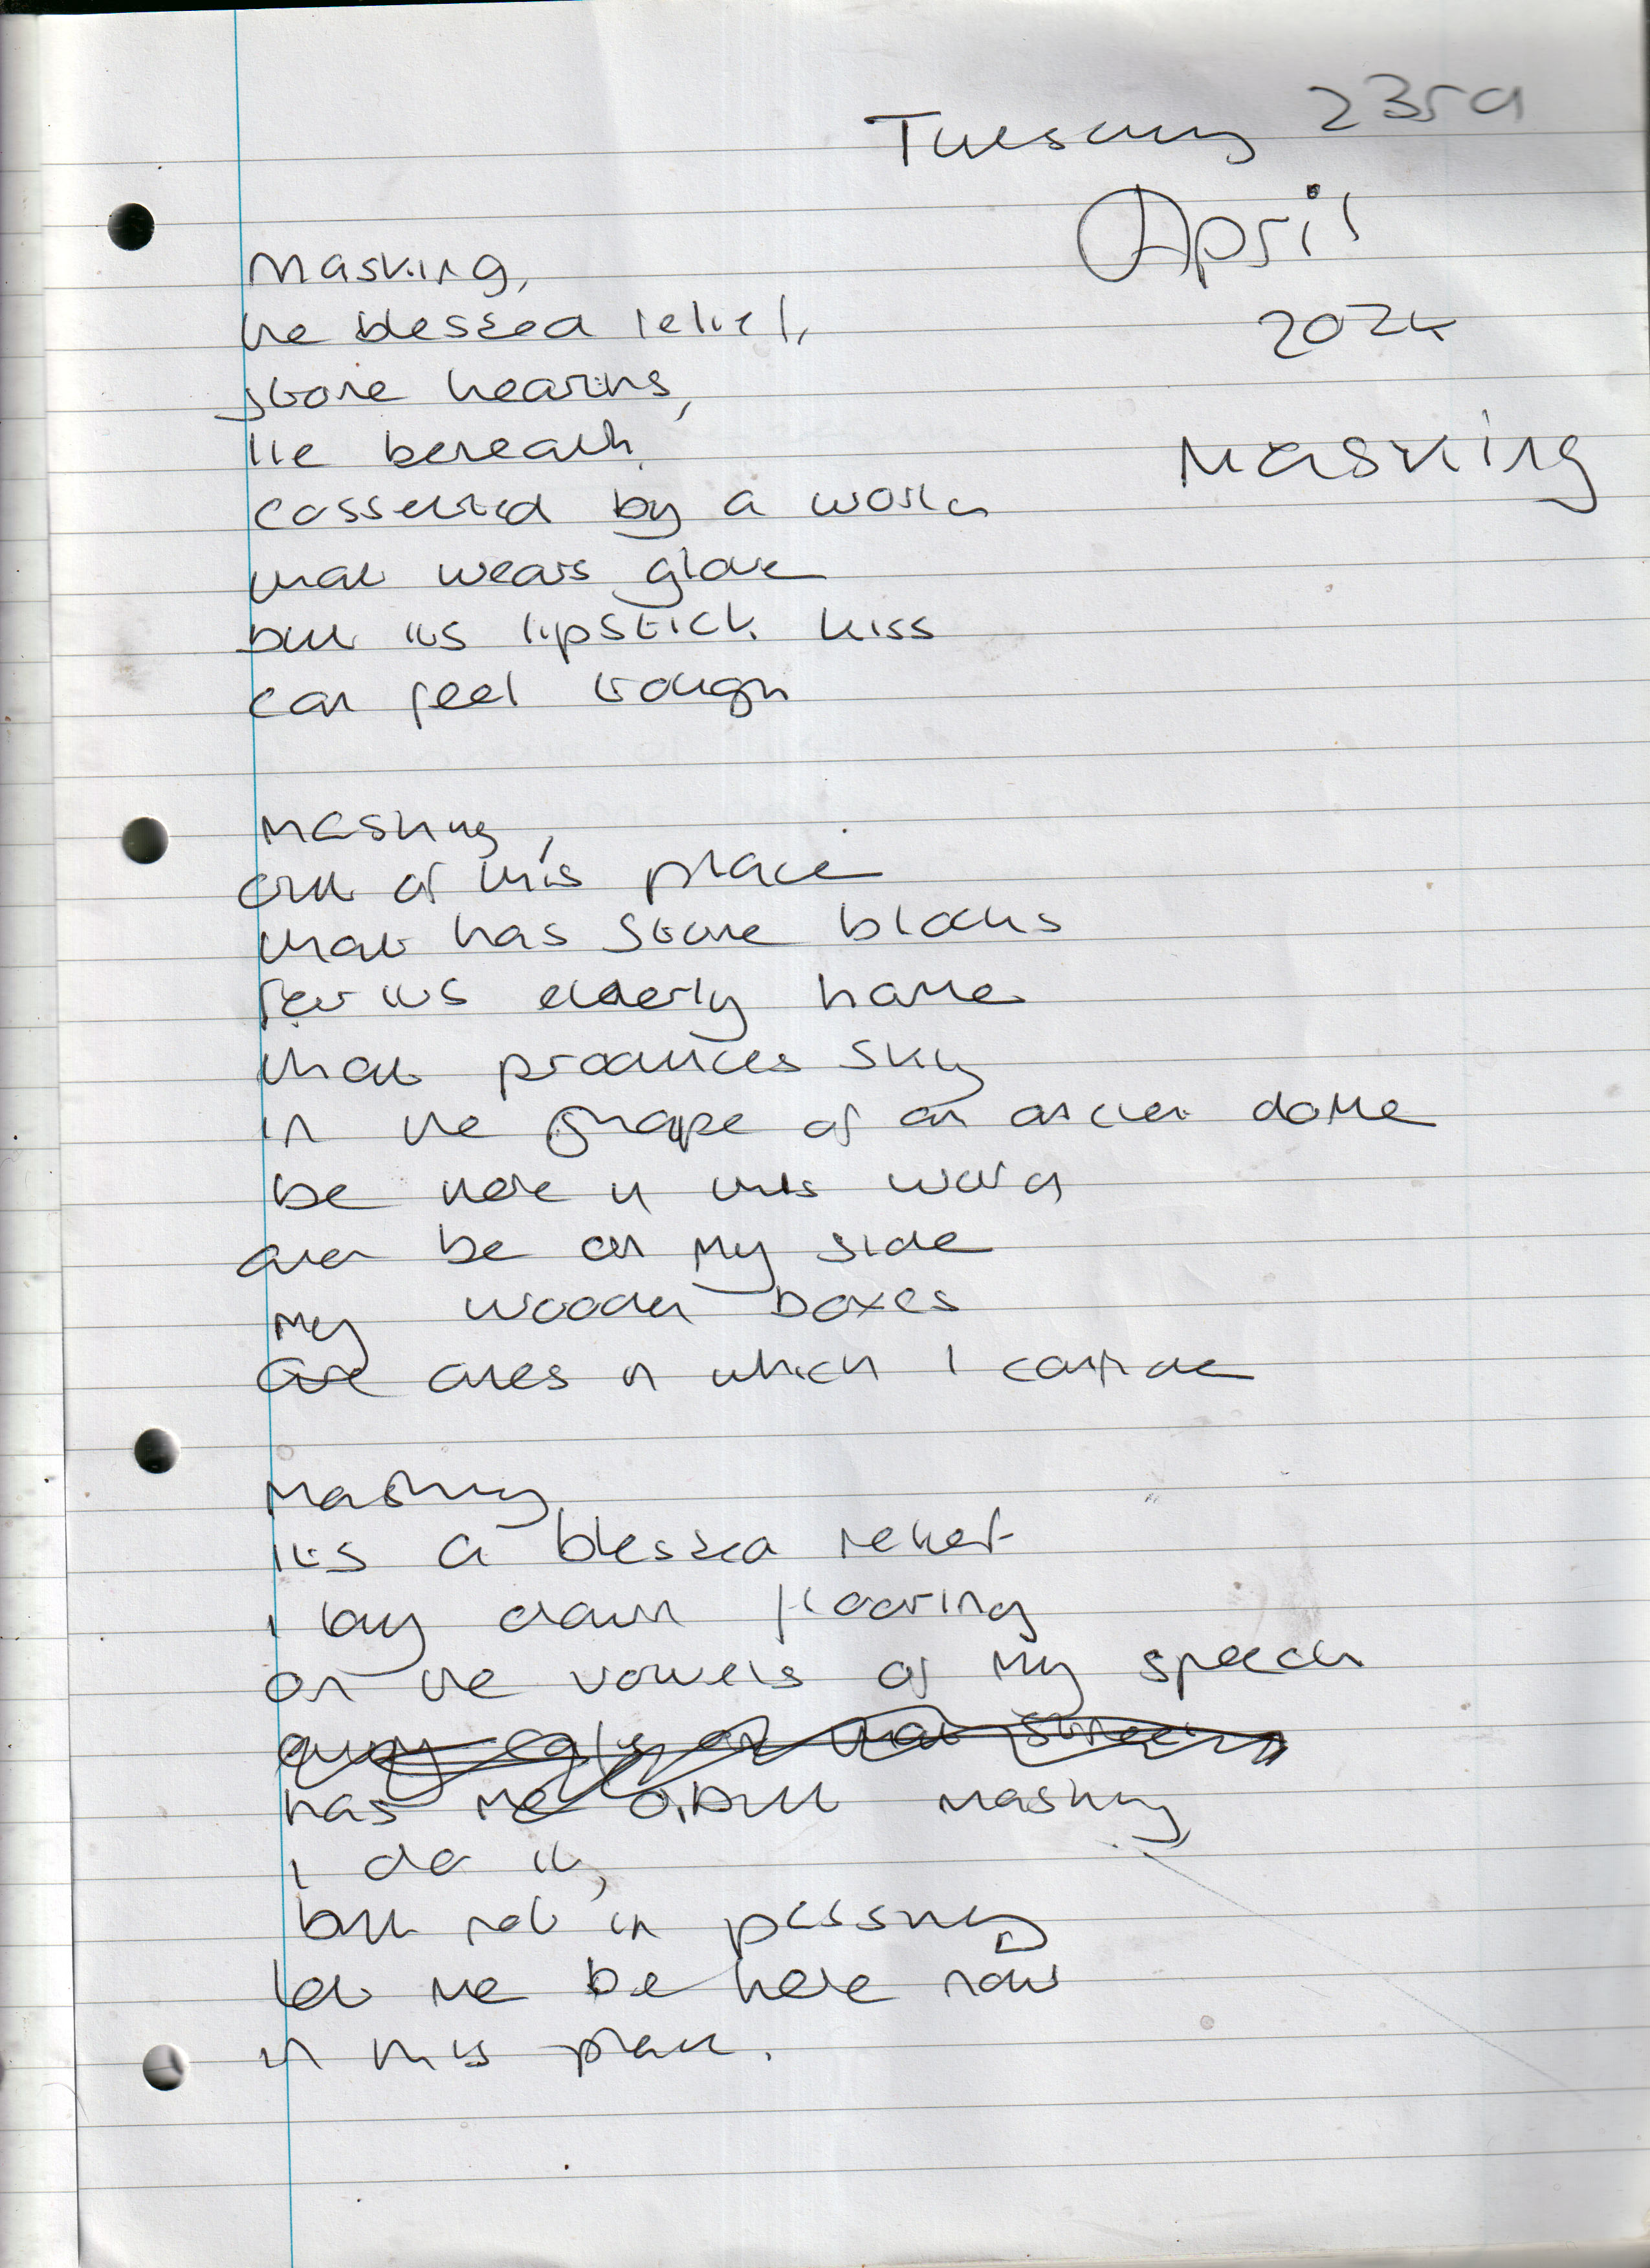 Tuesday 23rd
April
2024
Masking
Masking,
the blessed relief,
stone hearths,
lie beneath,
cossetted by a world
that wears glove
but its lipstick kiss
can feel rough
Masking,
out of this place
that has stone blocks
for its elderly home
that produces sky
in the shape of an ancient dome
be here in this world
and be on my side
my wooden boxes
are ones in which I confide
Masking
its a blessed relief
I lay down flooring
on the vowels of my speech
has me adult masking
I do it,
but not in passing
let me be here now
in this place.